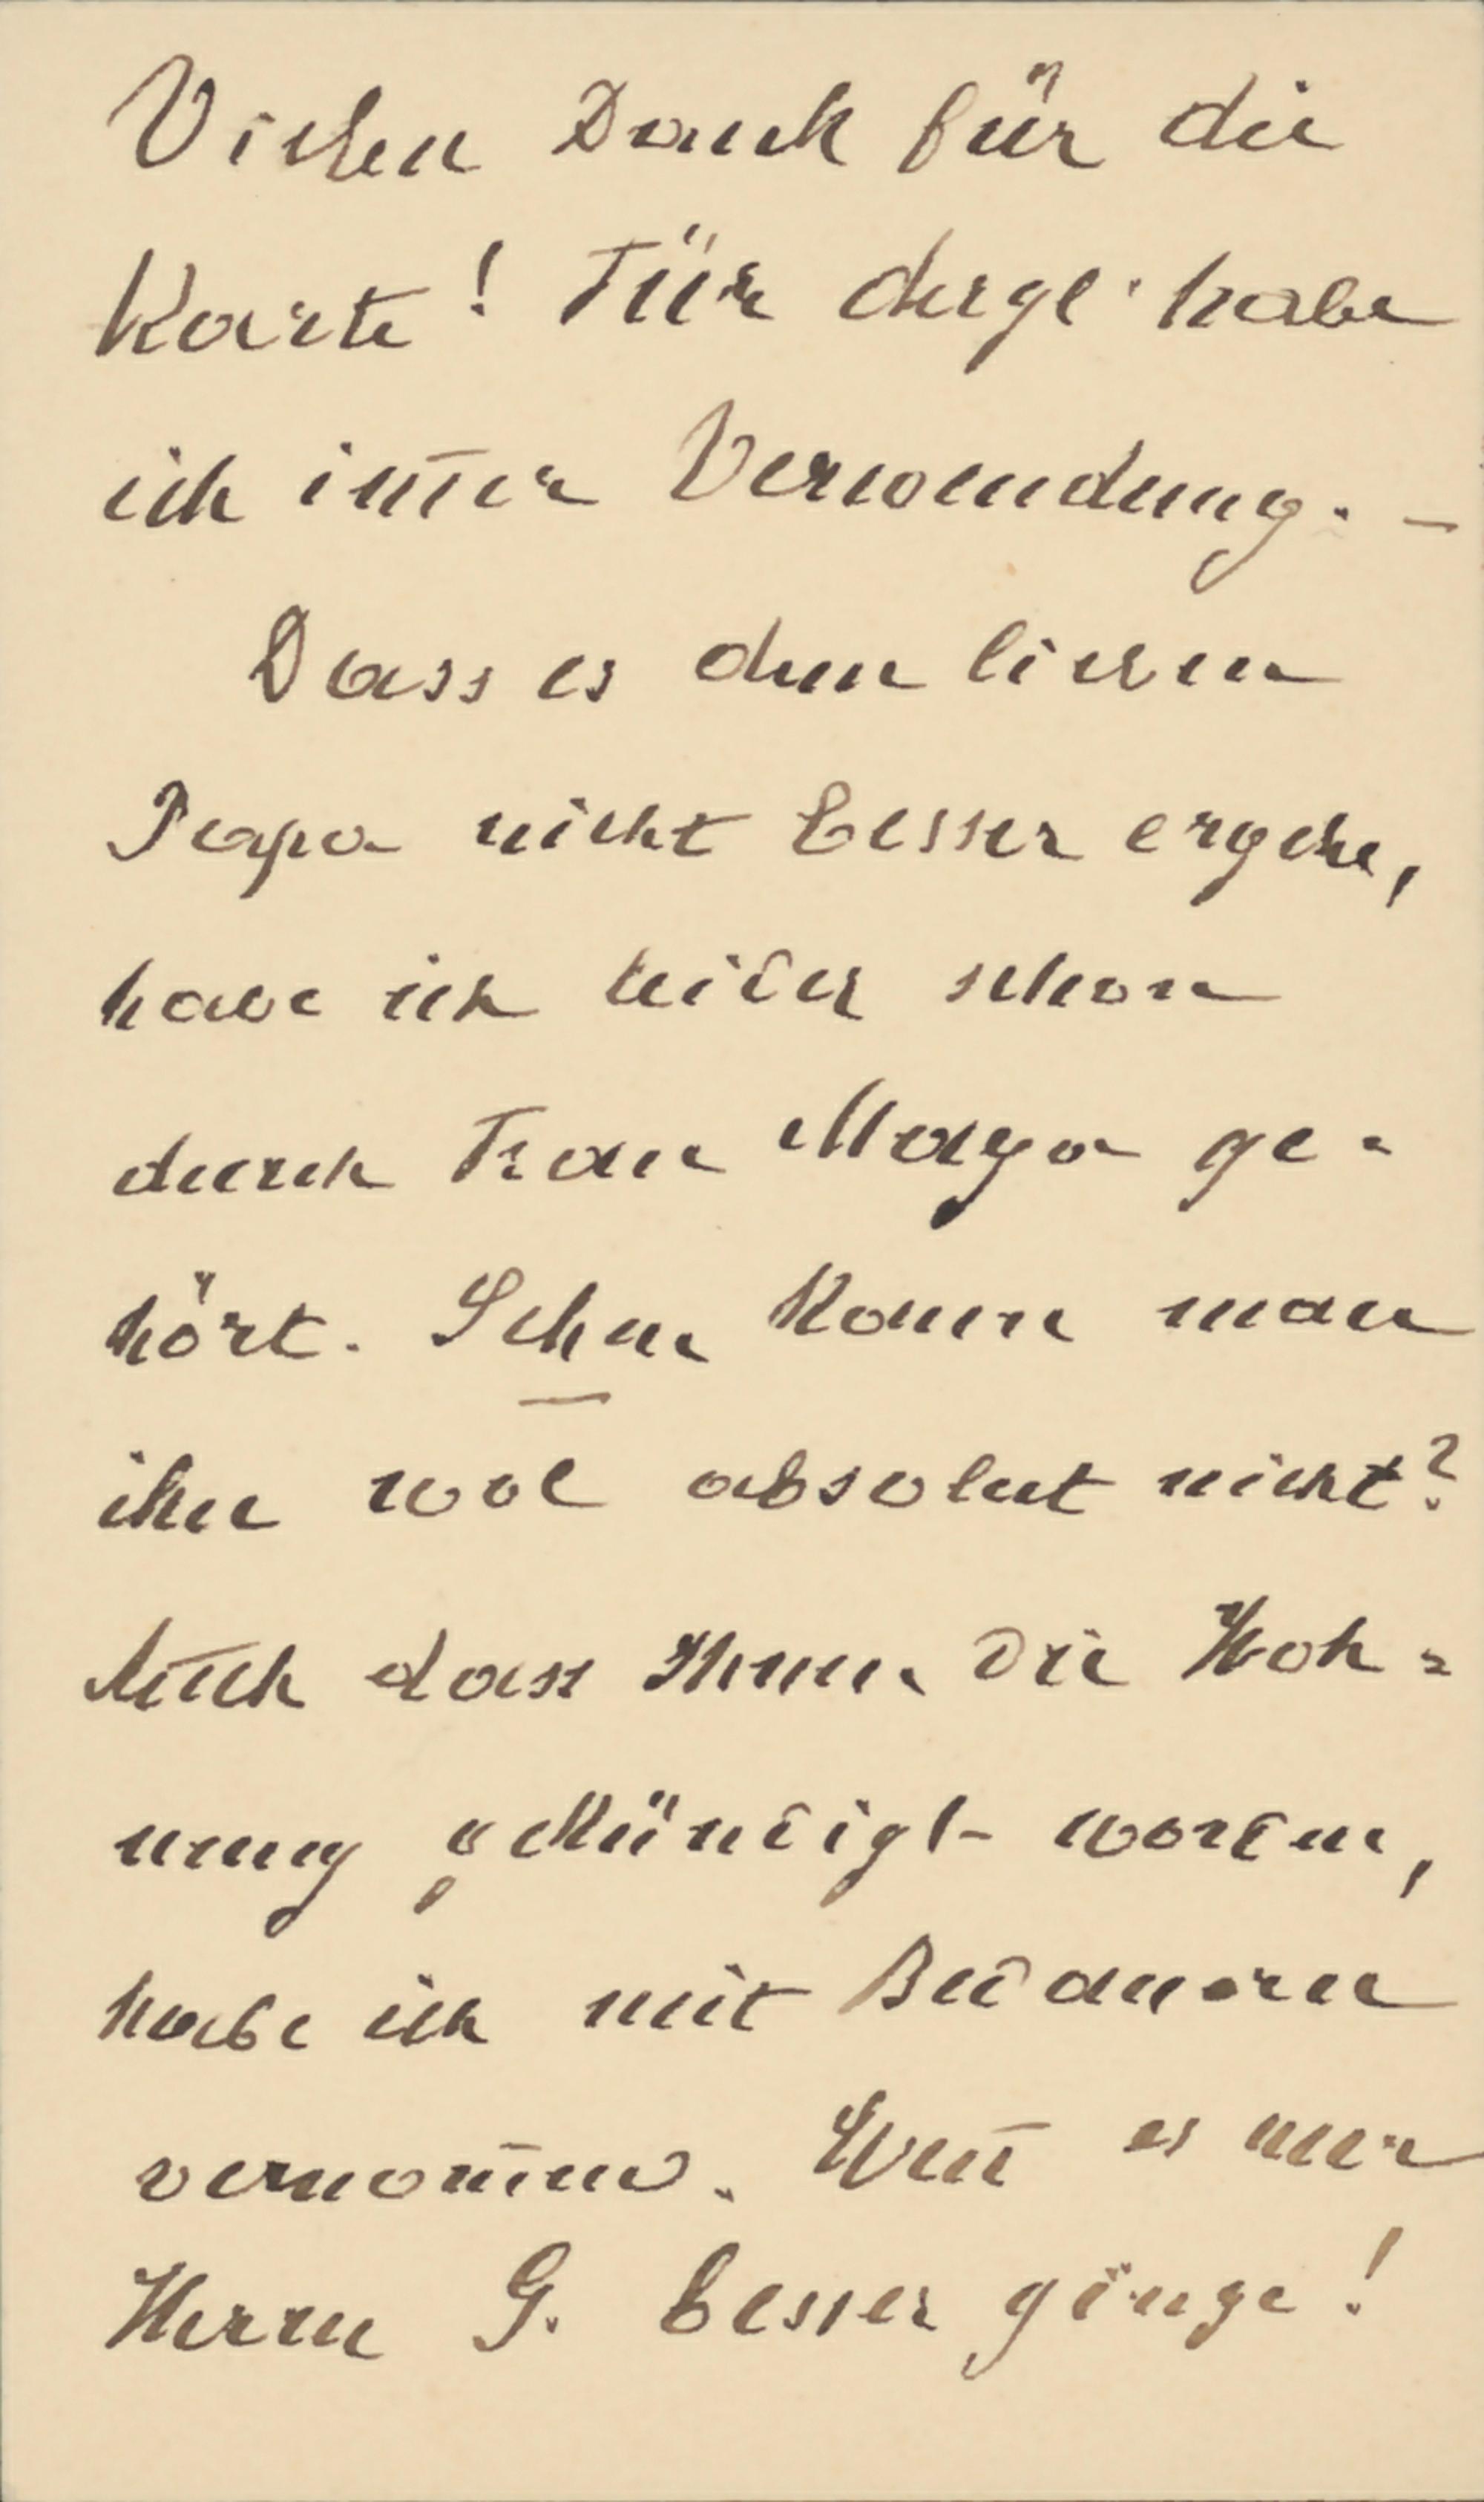 Vielen Dank für die
Karte! Für dergl. habe
ich im̄er Verwendung. –
Dass es dem lieben
Papa nicht besser ergehe,
habe ich leider schon
durch Frau Maya ge=
hört. Sehen kann man
ihn wol absolut nicht?
Auch dass Ihnen die Woh=
nung gekündigt worden,
habe ich mit Bedauern
vernom̄en. Wen̄ es nur
Herrn G. besser ginge!